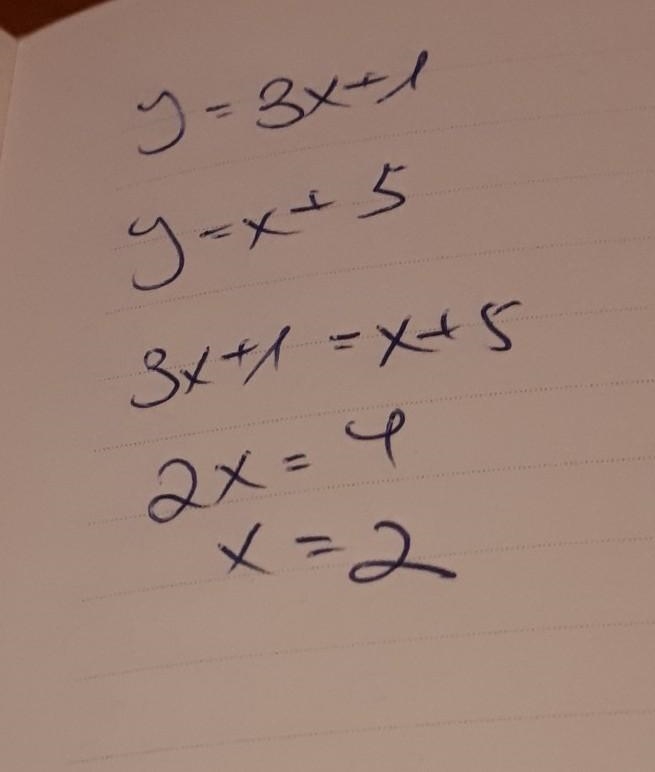 y = 3x+1
y=x+ 5
3x+1 = x+5
2x= 4
x = 2